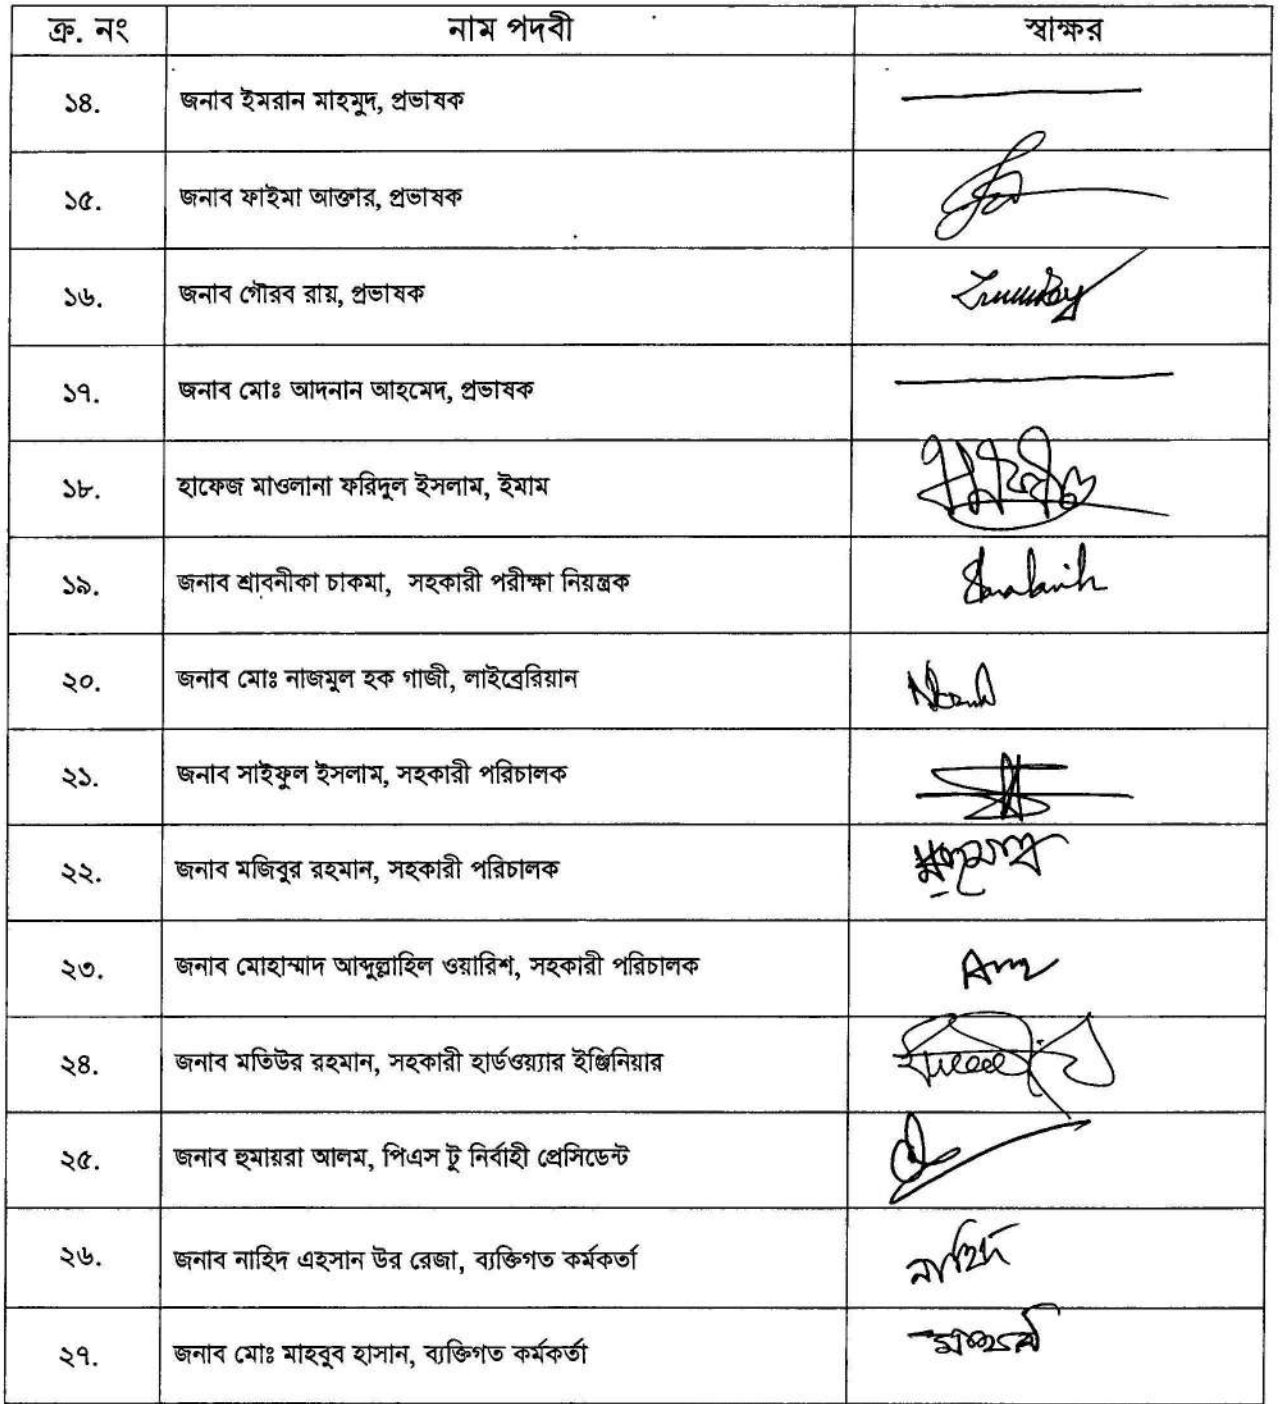 ক্র. নং নাম পদবী স্বাক্ষর
১৪. জনাব ইমরান মাহমুদ, প্রভাষক
১৫. জনাব ফাইমা আক্তার, প্রভাষক
১৬. জনাব গৌরব রায়, প্রভাষক
১৭. জনাব মোঃ আদনান আহমেদ, প্রভাষক
১৮. হাফেজ মাওলানা ফরিদুল ইসলাম, ইমাম
১৯. জনাব শ্রাবনীকা চাকমা, সহকারী পরীক্ষা নিয়ন্ত্রক
২০. জনাব মোঃ নাজমুল হক গাজী, লাইব্রেরিয়ান
২১. জনাব সাইফুল ইসলাম, সহকারী পরিচালক
২২. জনাব মজিবুর রহমান, সহকারী পরিচালক
২৩. জনাব মোহাম্মাদ আব্দুল্লাহিল ওয়ারিশ, সহকারী পরিচালক
২৪. জনাব মতিউর রহমান, সহকারী হার্ডওয়্যার ইঞ্জিনিয়ার
২৫. জনাব হুমায়রা আলম, পিএস টু নির্বাহী প্রেসিডেন্ট
২৬. জনাব নাহিদ এহসান উর রেজা, ব্যক্তিগত কর্মকর্তা নাহিদ
২৭. জনাব মোঃ মাহবুব হাসান, ব্যক্তিগত কর্মকর্তা